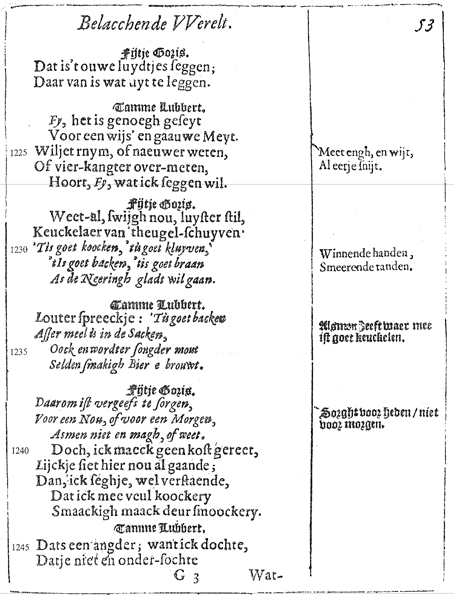 Belacchende VVerelt. 53
Fijtje Goris.
Dat is't ouwe luydtjes seggen;
Daar van is wat uyt te leggen.
Tamme Lubbert.
Fy, het is genoegh geseyt
Voor een wijs' en gaauwe Meyt.
1225 Wiljet rnym, of naeuwer weten,
Meet engh, en wijt,
Of vier-kangter over-meten,
Al eerje snijt.
Hoort, Fy, wat ick seggen wil.
Fijtje Goris.
Weet-al, swijgh nou, luyster stil,
Keuckelaer van 'theugel-schuyven·
1230 'Tis goet koocken, 'tis goet kluyven,
Winnende handen,
'tIs goet backen, 'tis goet braan
Smeerende tanden.
As de Neeringh gladt wil gaan.
Tamme Lubbert.
Louter spreeckje: 'Tis goet backen
Alsmen heeft waer mee
Asser meel is in de Sacken,
ist goet keuckelen.
1235 Oock en wordter songder mout
Selden smakigh Bier e brouwt.
Fijtje Goris.
Daarom ist vergeefs te sorgen,
Sorght voor heden/niet
Voor een Nou, of voor een Morgen,
voor morgen.
Asmen niet en magh, of weet.
1240 Doch, ick maeck geen kost gereet,
Lijckje siet hier nou al gaande;
Dan, ick seghje, wel verstaende,
Dat ick mee veul koockery
Smaackigh maack deur smoockery.
Tamme Lubbert.
1245 Dats een angder; want ick dochte,
Datje niet en onder-sochte
G 3 Wat-